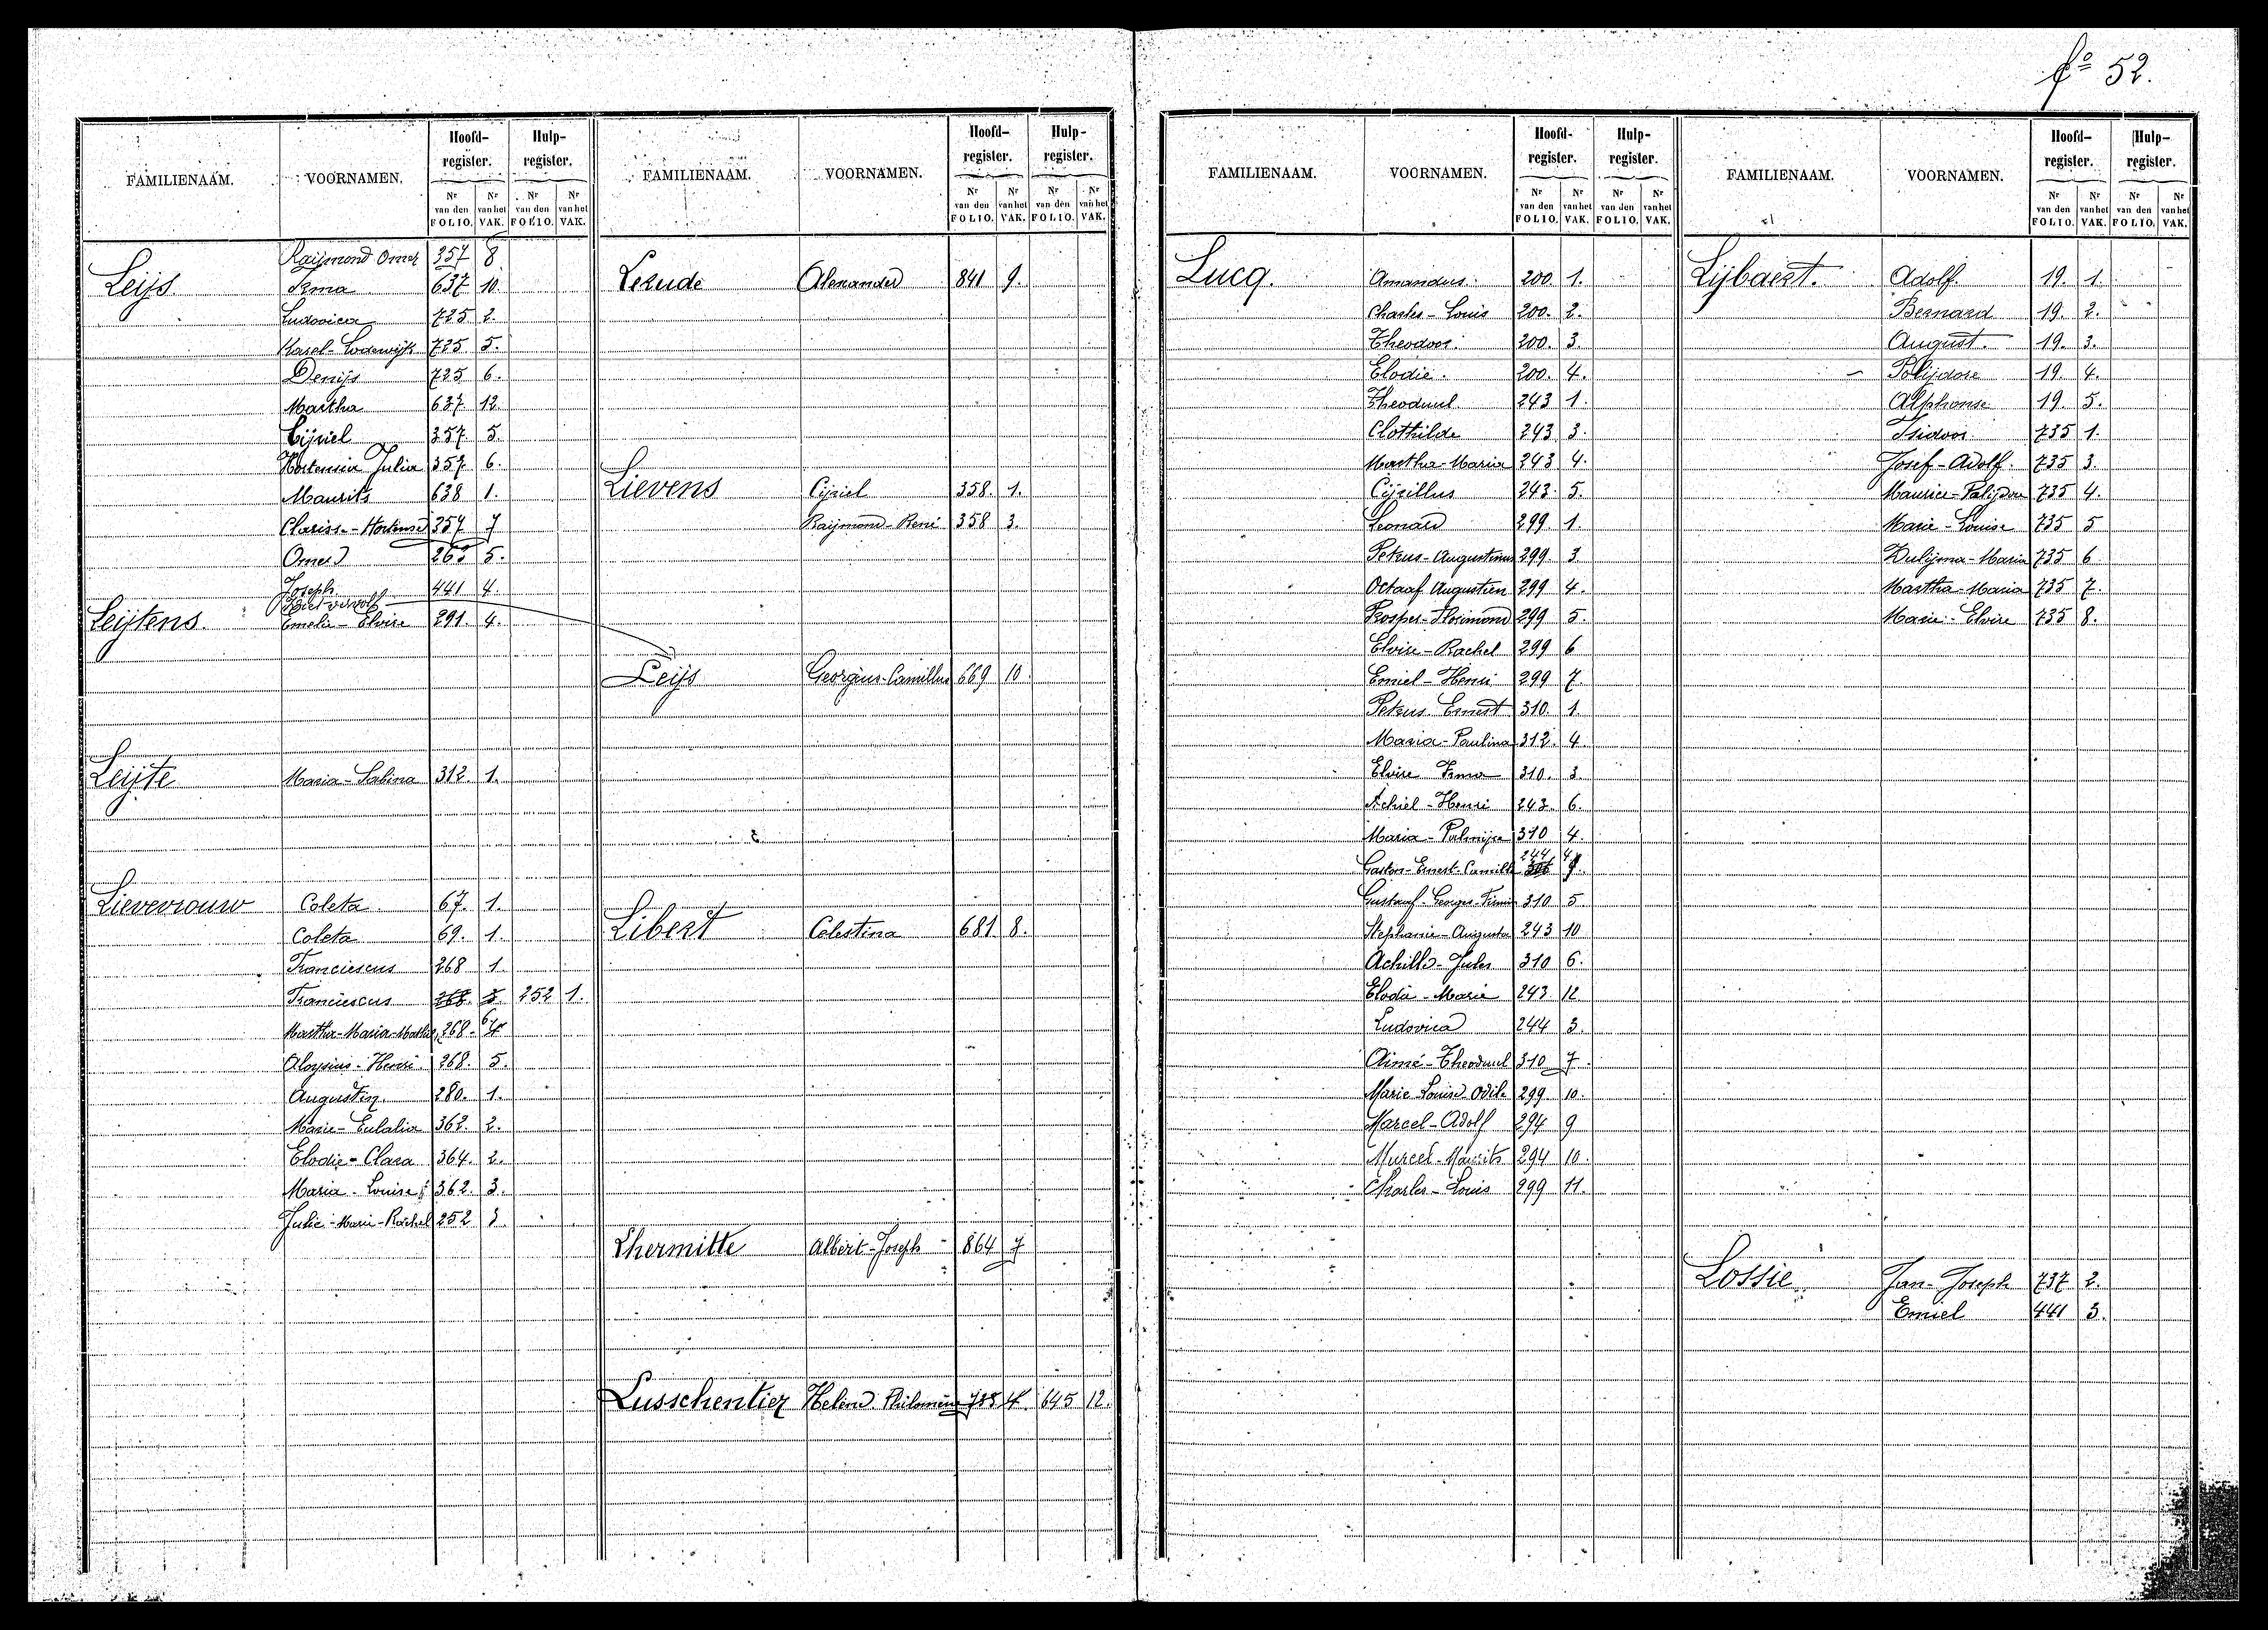 fo 52.
FAMILIENAAM. VOORNAMEN. Hoofd-register. Hulp-register.
Nr van den FOLIO. Nr van het VAK. Nr van den FOLIO. Nr van het VAK.
Leijs Raijmond Omer 357 8
Irma 637 10
Ludovica 725 2.
Karel-Lodewijk 725 5.
Denijs 725 6.
Martha 637. 12.
Cijriel 357. 5.
Hortensia Julia 357. 6.
Maurits 638 1.
Clarisse-Hortense 357 7
Omer 263 5.
Joseph 441 4.
Ziet vervolg
Leijtens. Emelie-Elvire 291. 4.
Leijte Maria-Sabina 312. 1.
Lievevrouw Coleta 67. 1.
Coleta 69. 1.
Franciescus 268 1.
Franciescus 268. 3. 252 1.
Martha-Maria- 268. 6 4
Aloysius-Henri 268. 5.
Augustin. 280. 1.
Marie-Eulalia 362. 2.
Elodie-Clara 364. 2.
Maria-Louise 362. 3.
Julie-Marie-Rachel 252 3.
FAMILIENAAM. VOORNAMEN. Hoofd-register. Hulp-register.
Nr van den FOLIO. Nr van het VAK. Nr van den FOLIO. Nr van het VAK.
Lerude Alexander 841 9.
Lievens Cijriel 358. 1.
Raijmond-René 358 3.
Leijs Georgius-Camillus 669 10.
Libert Celestina 681. 8.
Lhermitte Albert-Joseph 864 7
Lusschentier Helena Philomena 735 4. 645 12.
FAMILIENAAM. VOORNAMEN. Hoofd-register. Hulp-register.
Nr van den FOLIO. Nr van het VAK. Nr van den FOLIO. Nr van het VAK.
Lucq. Amandus. 200. 1.
Charles-Louis 200. 2.
Theodoor. 200. 3.
Elodie. 200. 4.
Theoduul. 243 1.
Clothilde 243. 3.
Martha-Maria 243 4.
Cijrillus 243. 5.
Leonard 299 1.
Petrus-Augustinus 299 3.
Octaaf Augustien 299 4.
Prosper-Florimond 299 5.
Elvire-Rachel 299 6
Emiel-Henri 299 7.
Petrus Ernest 310. 1.
Maria-Paulina 312. 4.
Elvire Irma 310. 3.
Achiel-Henri 243. 6.
Maria-Palmijra 310 4.
Gaston-Ernest-Camille 244 4
Gustaaf-Georges-Firmin 310 5.
Stephanie-Augusta 243 10
Achille-Jules 310 6.
Elodie-Marie 243. 12
Ludovica 244 3.
Aimé-Theoduul 310 7.
Marie Louise Odile 299 10.
Marcel-Adolf 294 9
Marcel-Maurits 294 10.
Charles-Louis 299 11.
FAMILIENAAM. VOORNAMEN. Hoofd-register. Hulp-register.
Nr van den FOLIO. Nr van het VAK. Nr van den FOLIO. Nr van het VAK.
Lijbaert. Adolf. 19. 1.
Bernard 19. 2.
August. 19. 3.
Polijdore 19. 4.
Alphonse 19. 5.
Isidoor. 735 1.
Josef-Adolf. 735 3.
Maurice-Polijdore 735 4.
Marie-Louise 735 5
Zulijma-Maria 735 6.
Martha-Maria 735 7.
Marie-Elvire 735 8.
Lossie Jan-Joseph 737 2.
Emiel 441 3.